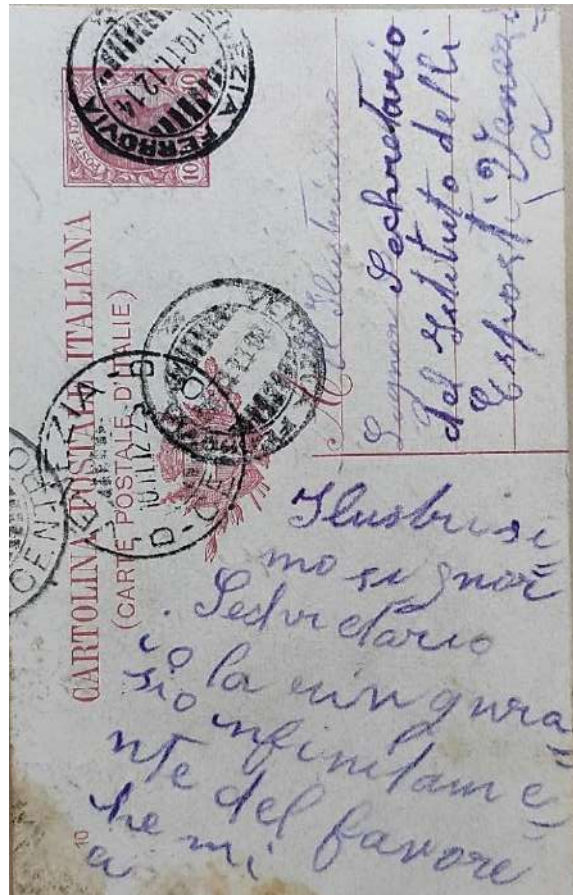 CARTOLINA POSTALE ITALIANA
(CARTE POSTALE D'ITALIE)
POSTE
10 10
VENEZIA FERROVIA
10.11.12.14
VENEZIA
10.11.12
CENTRO
Al Ilustrissimo
Signor Sechretario
del Istituto delli
Esposti Venezi=
a
Ilustrissi=
mo signor
Sechretario
io la ringra=
sio infinitam e=
nte del favore
he mi
a
10